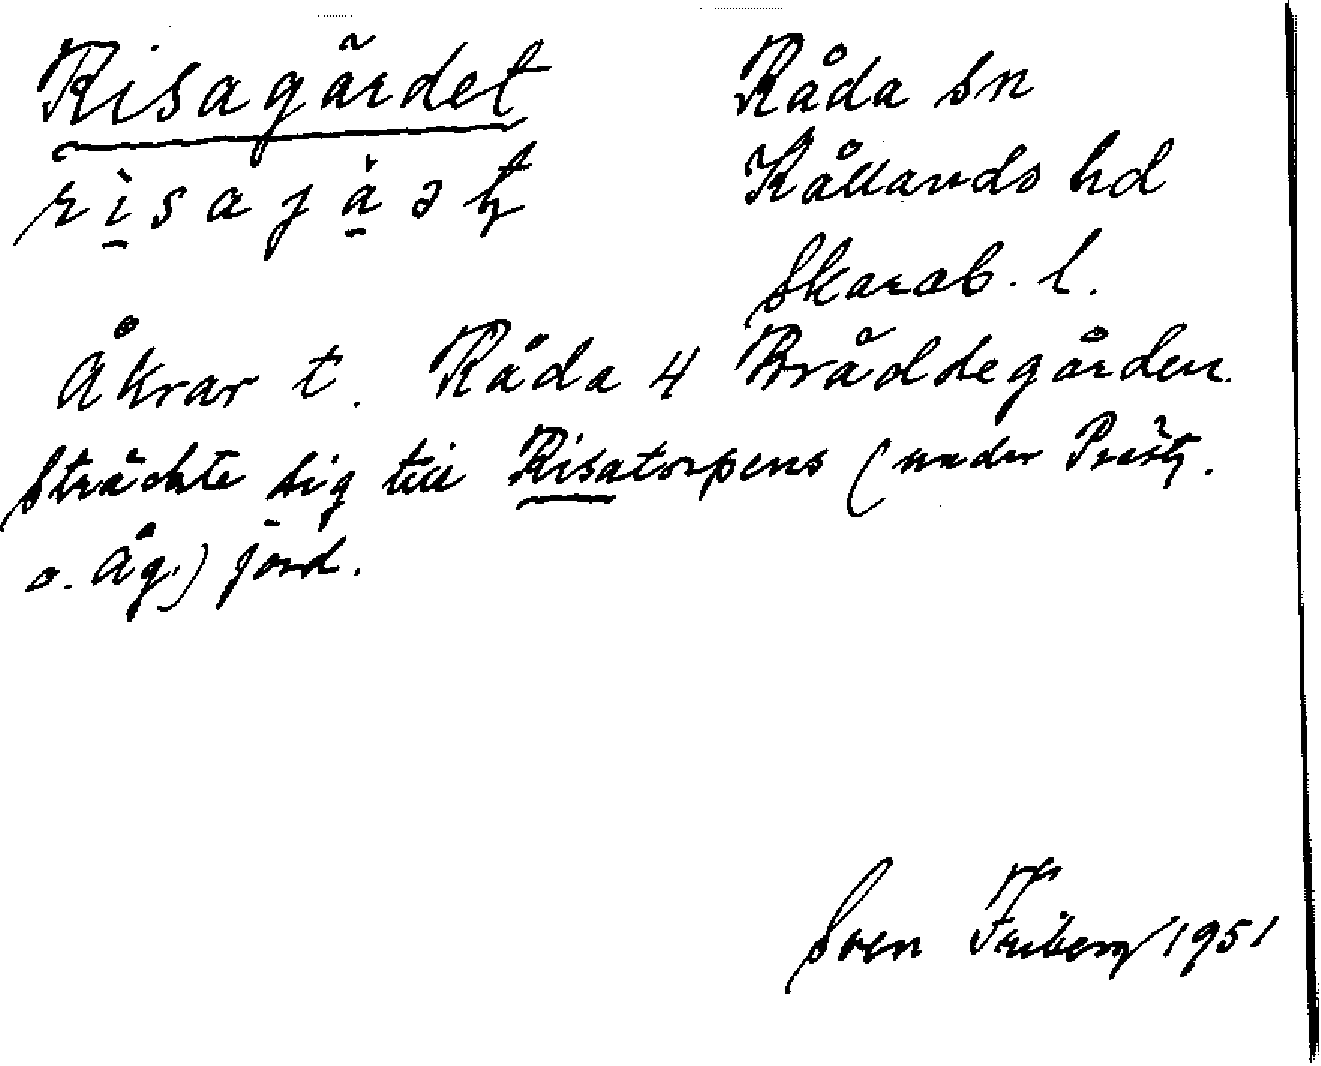 Risagärdet
risajäṣṭ
Råda sn
Kållands hd
Skarab. l.
Åkrar t. Råda 4 Bräddegården.
Sträckte sig till Risatorpens (under Prästg.
o. Åg.) jord.
Sven Friberg 1951